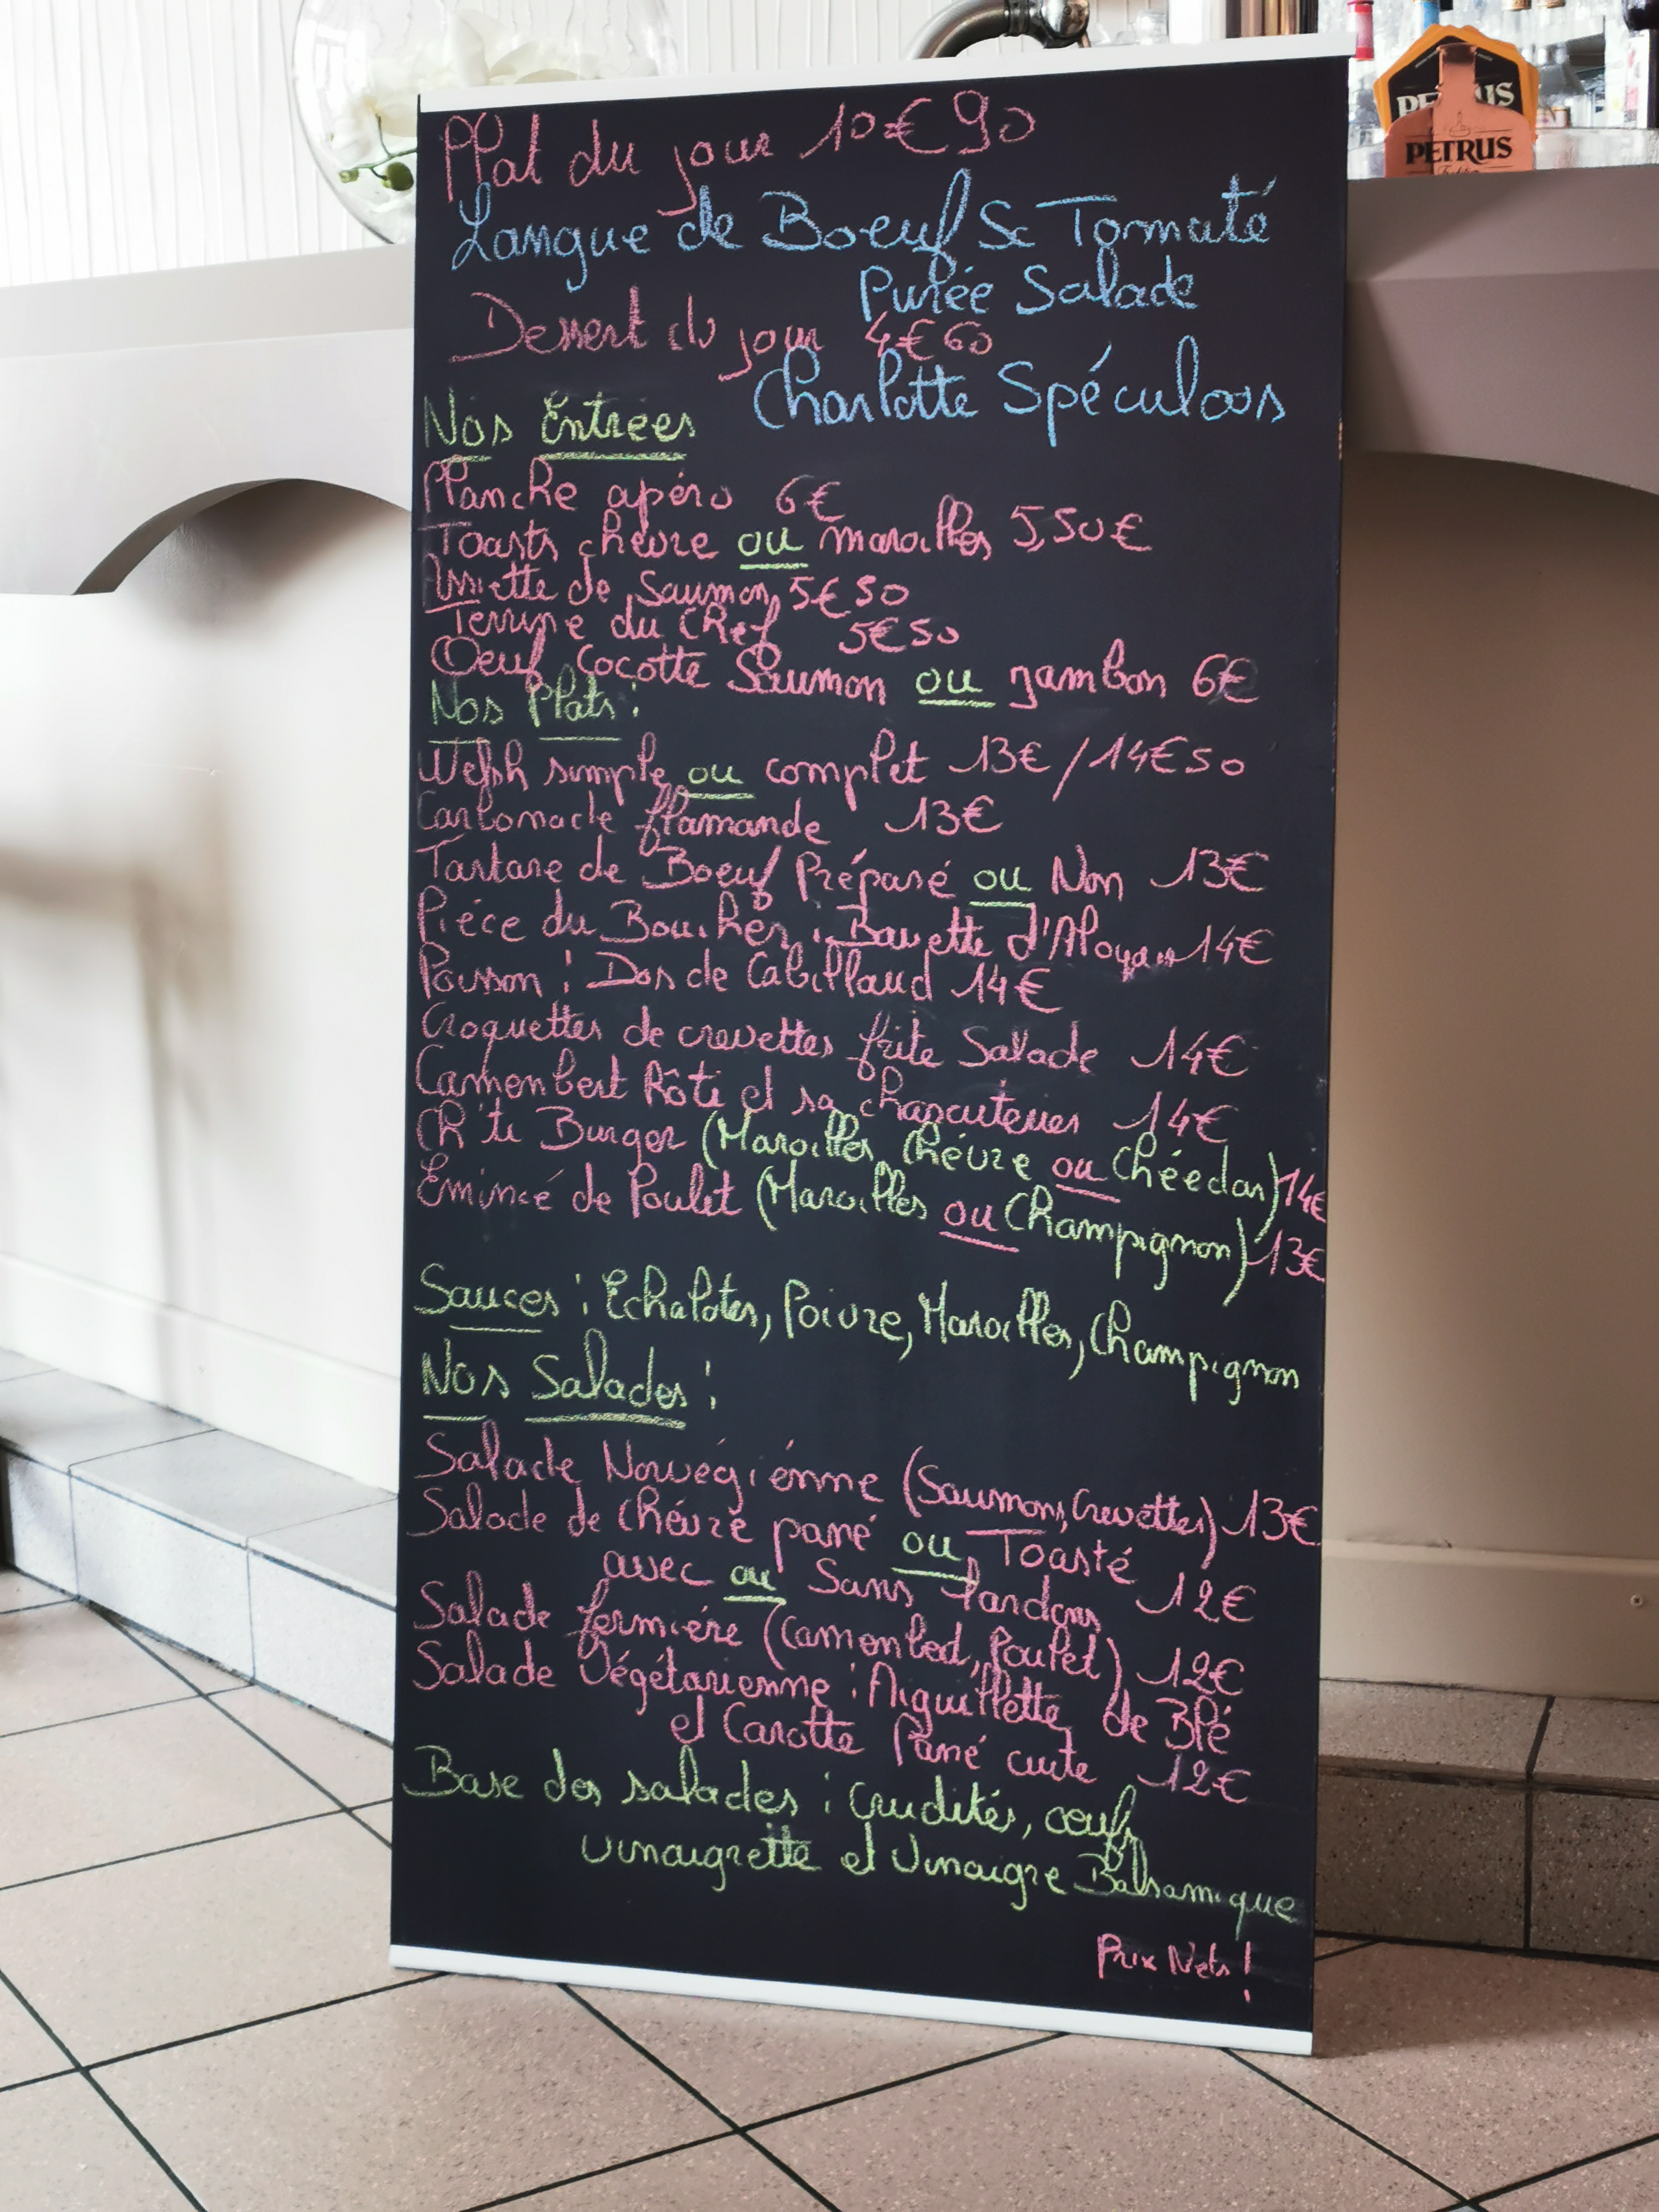 Plat du jour 10€90
Langue de Boeuf Sc Tomaté
Purée Salade
Dessert du jour 4€60
Charlotte Spéculoos
Nos Entrees
Planche apéro 6€
Toasts chèvre ou maroilles 5,50€
Assiette de Saumon 5€50
Terrine du Chef 5€50
Oeuf Cocotte Saumon ou jambon 6€
Nos Plats :
Welsh simple ou complet 13€ / 14€50
Carbonade flamande 13€
Tartare de Boeuf Préparé ou Non 13€
Piéce du Boucher : Bavette d'Aloyau 14€
Poisson : Dos de Cabillaud 14€
Croquettes de crevettes frite Salade 14€
Camenbert Rôti et sa charcuteries 14€
Ch'ti Burger (Maroilles, Chévre ou Chéedar) 14€
Emincé de Poulet (Maroilles ou Champignon) 13€
Sauces : Echalotes, Poivre, Maroilles, Champignon
Nos Salades :
Salade Norvégiénne (Saumons, Crevettes) 13€
Salade de Chévre pané ou Toasté
avec ou Sans lardons 12€
Salade fermiére (Camenbert, Poulet) 12€
Salade Végétarienne : Aiguillette de Blé
et Carotte Pané cuite 12€
Base des salades : Crudités, oeufs
vinaigrette et Vinaigre Balsamique
Prix Nets !
PETRUS
PETRUS